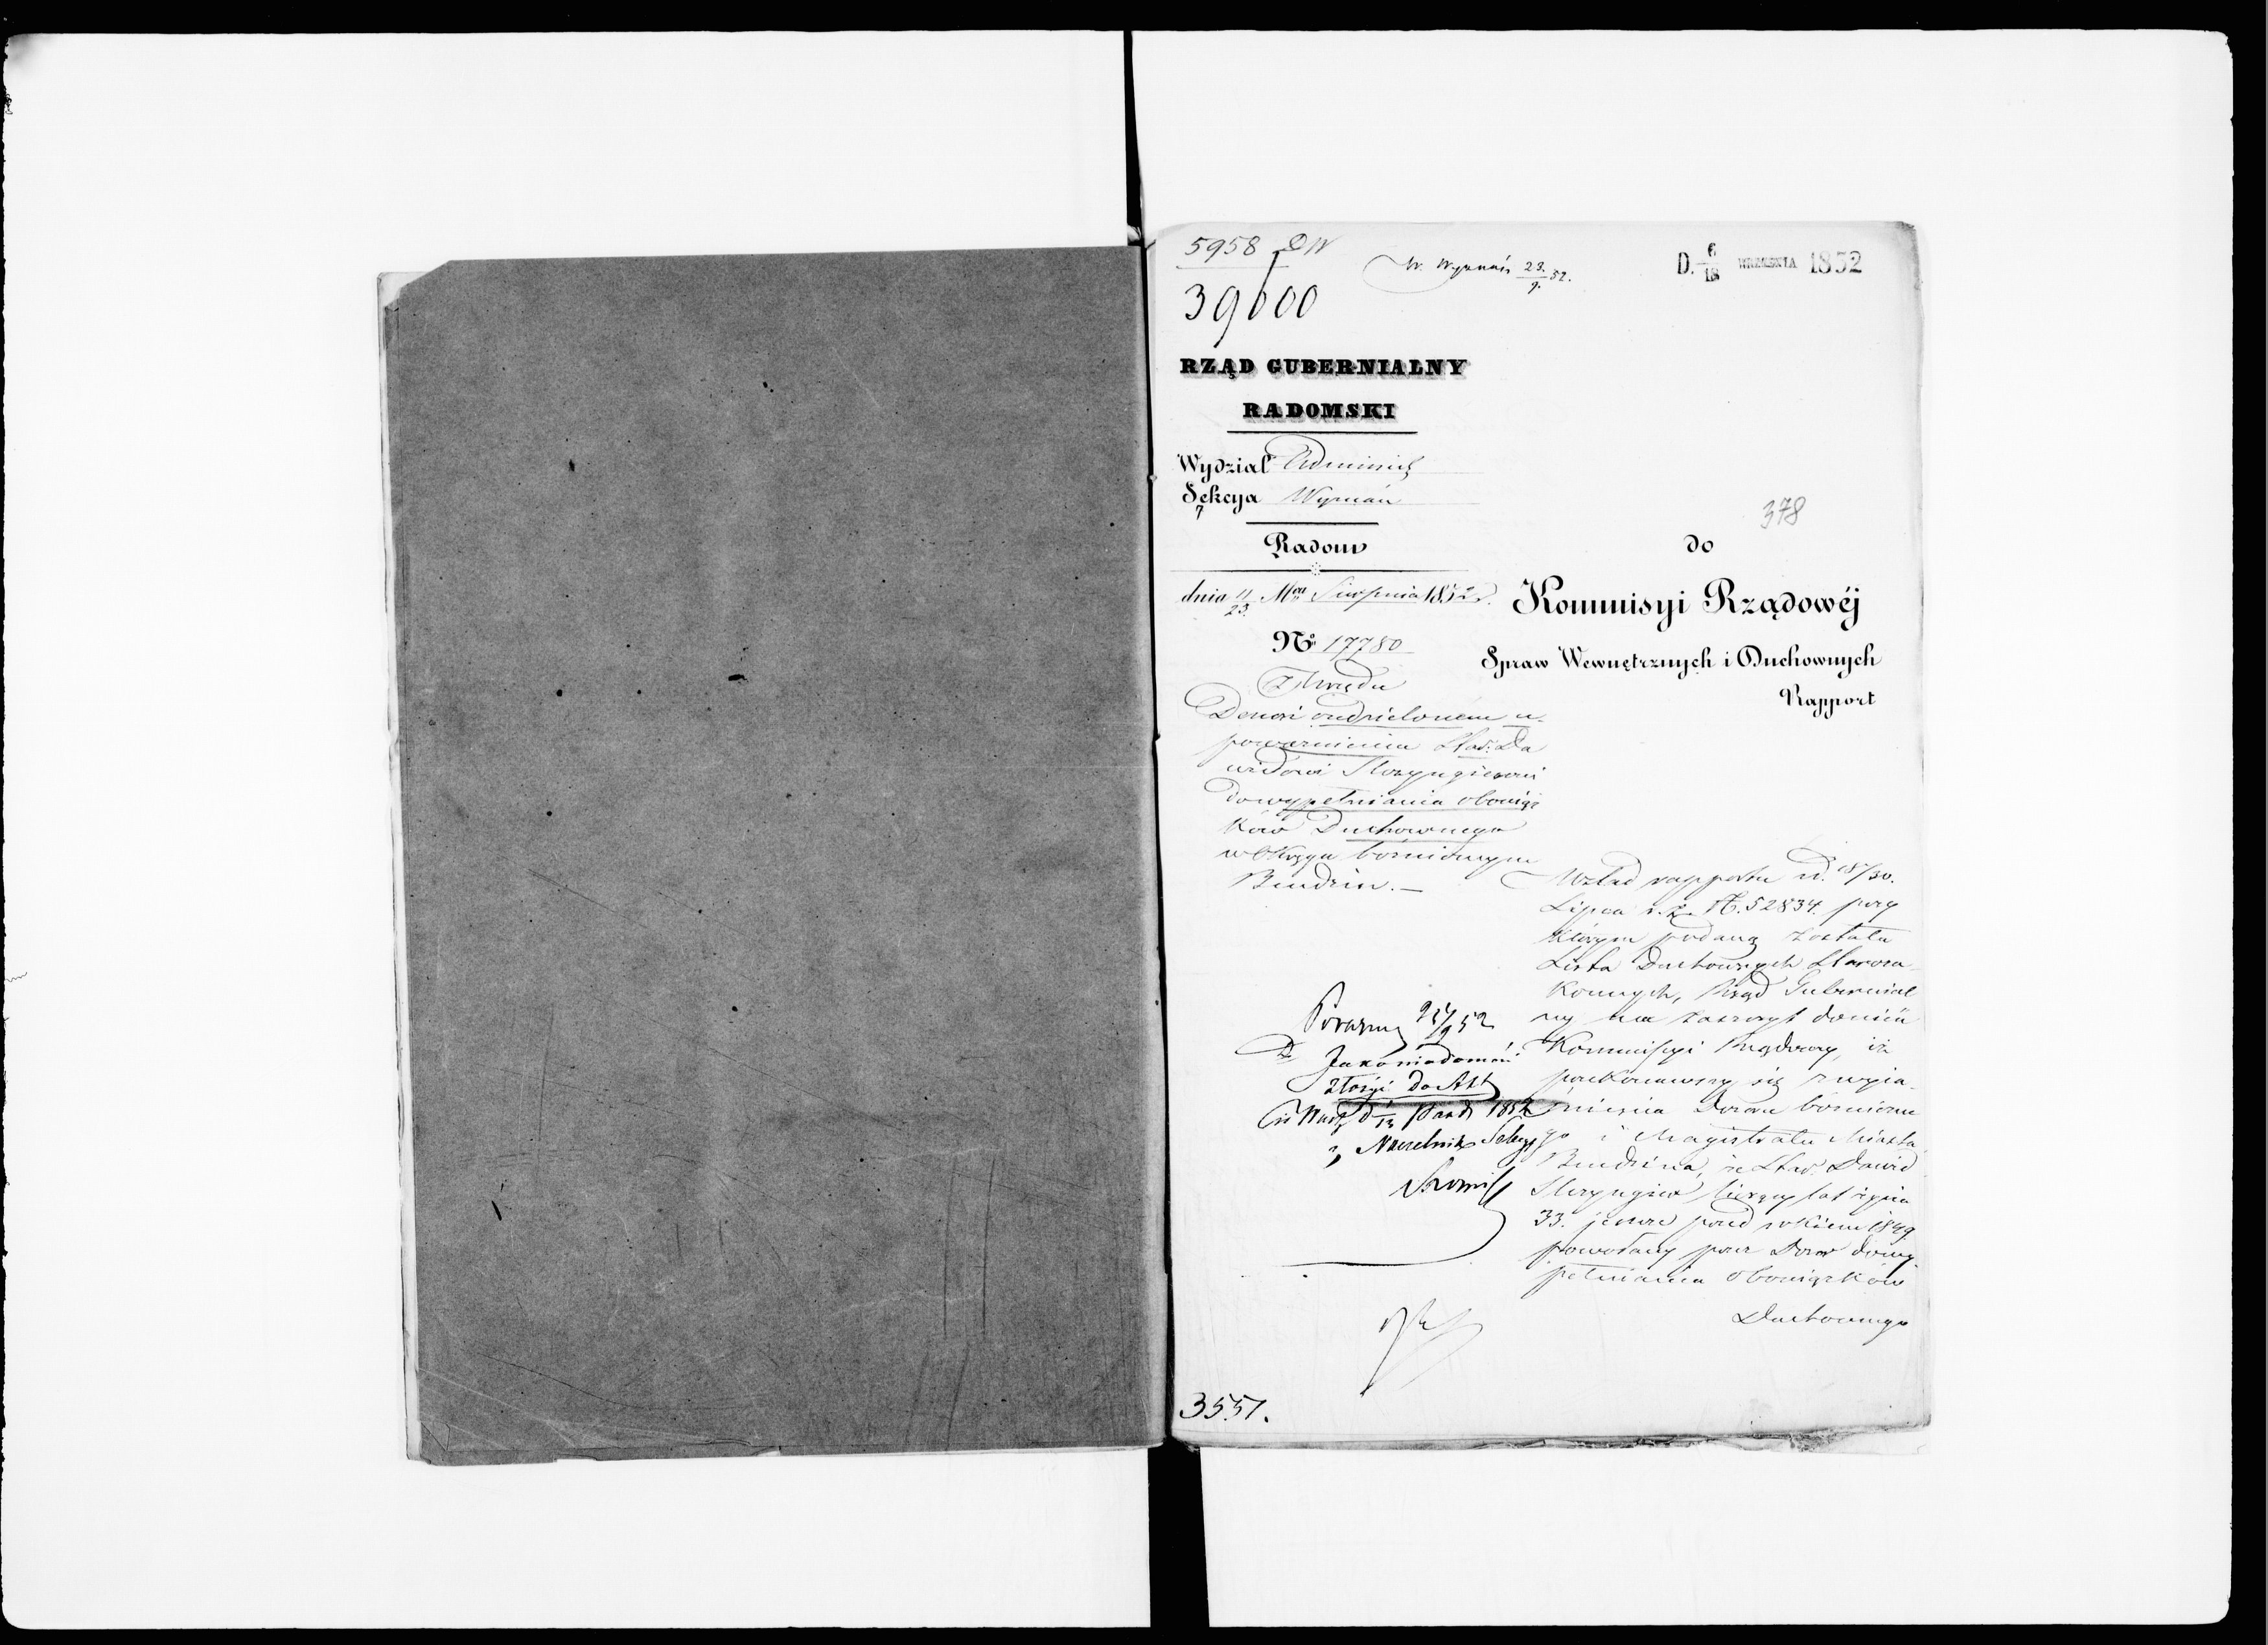 5958 DW
39000
W. Wyznań 23/9 52.
D. 6/18 WRZEŚNIA 1852
RZĄD GUBERNIALNY
RADOMSKI
Wydział Administ
Sekcya Wyznań
Radom
dnia 11/23 Mca Sierpnia 1852 r.
No 17780
378
do
Kommisyi Rządowéj
Spraw Wewnętrznych i Duchownych
Rapport
Z Urzędu
Donosi o udzieloném u-
poważnieniu Staż: Da
widowi
do wypełniania obowiąz
ków Duchownego
w Okręgu bożniczym
Bendzin.—
W ślad rapportu z d. 18/30.
Lipca r. b. N. 52834. przy
którym podaną została
Lista Duchownych Staroza-
konnych, Rząd Gubernial
ny ma zaszczyt donieść
Kommisyi Rządowey, iż
przekonawszy się z wyja-
śnienia Dozoru bożnicze
go i Magistratu Miasta
Bendzina, że Star. Dawid
liczący lat życia
33. jeszcze przed rokiem 1849.
powołany przez Dozór do wy-
pełniania obowiązków
Duchownego
Jako wiadomość
złożyć do Akt
1852
Naczelnik Sekcyi
3551.